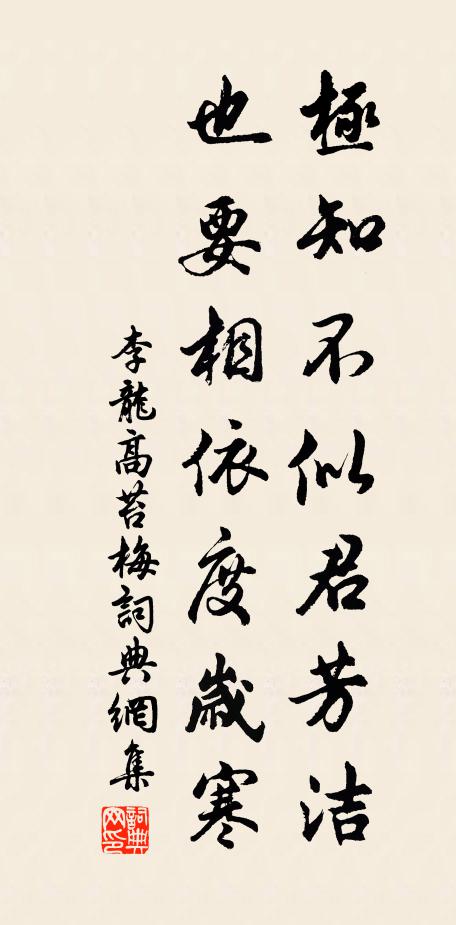 極知不似君芳洁
也要相依度歲寒
李龍高苔梅詞典網集
詞典网印